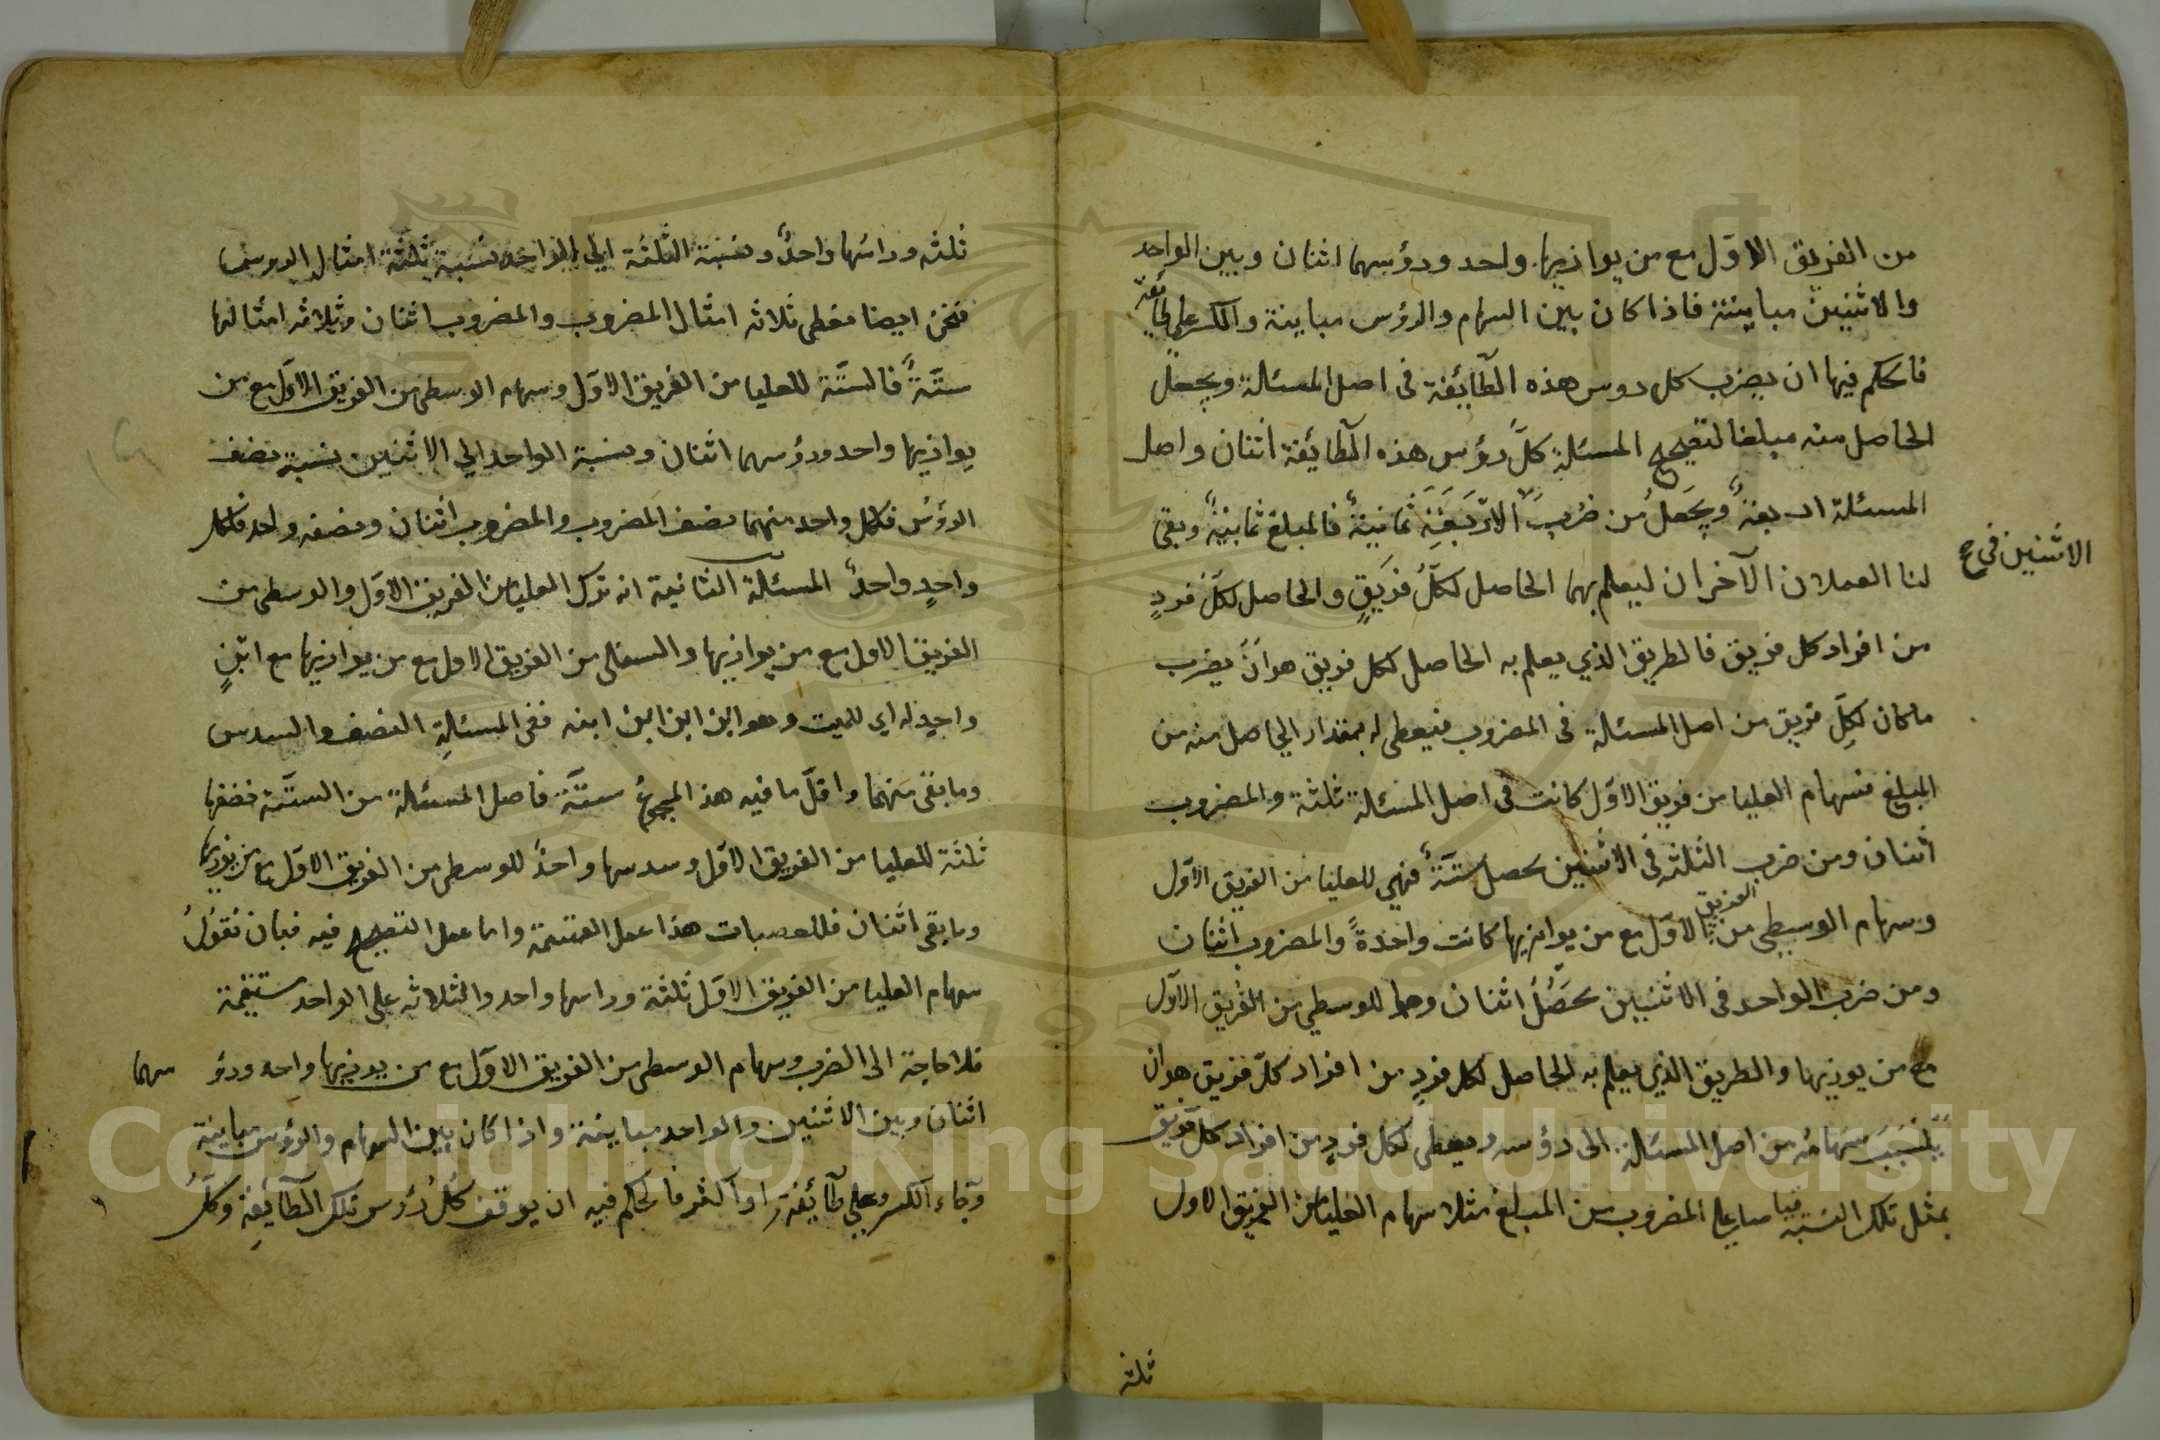 من الفريق الاول مع من يوازيها واحد ورؤسهما اثنان وبين الواحد
والاثنين مباينة فاذا كان بين السهام والرؤس مباينة والكسر على طائفة
فالحكم فيها ان يضرب كل روس هذه الطائفة فى اصل المسئالة ويجعل
الحاصل منه مبلغا لتصحيح المسئلة كل رؤس هذه الطائفة اثنان واصل
المسئلة اربعة ويجعل من ضرب الاربعة ثمانية فالمبلغ ثمانية وبقى
الاثنين فى صح
لنا العملان الآخران ليعلم بهما الحاصل لكل فريق والحاصل لكل فرد
من افراد كل فريق فالطريق الذي يعلم به الحاصل لكل فريق هو ان يضرب
ما كان لكل فريق من اصل المسئالة فى المضروب فيعطى له بمقدار الحاصل منه من
المبلغ فسهام العليا من فريق الاول كانت فى اصل المسئلة ثلثة والمضروب
اثنان ومن ضرب الثلثة فى الاثنين يحصل ستة فهي للعليا من الفريق الاول
وسهام الوسطى من الفريق الاول مع من يوازيها كانت واحدة والمضروب اثنان
ومن ضرب الواحد فى الاثنين يحصل اثنان وهما للوسطي من الفريق الاول
مع من يوزيها والطريق الذي يعلم به الحاصل لكل فرد من افراد كل فريق هو ان
ينسب سهامه من اصل المسئلة الى رؤسه ويعطى لكل فرد من افراد كل فريق
بمثل تلك النسبة من المبلغ مثلا سهام العليا من الفريق الاول
ثلثه
ثلثه وراسها واحد ونسبة الثلثة الي الواحد نسبة ثلثة امثال الروس
فنحن ايضا نعطى ثلاثه امثال المضروب والمضروب اثنان وثلاثه امثالها
ستة فالستة للعليا من الفريق الاول وسهام الوسطى من الفريق الاول مع من
يوازيها واحد ورؤسهما اثنان ونسبة الواحد الي الاثنين نسبة نصف
الرؤس فلكل واحد منهما نصف المضروب والمضروب اثنان ونصفه واحد فلكل
واحد واحد المسئلة الثانية انه ترك العليا من الفريق الاول والوسطى من
الفريق الاول مع من يوازيها والسفلى من الفريق الاول مع من يوازيها مع ابن
واحد له اي للميت وهو ابن ابن ابن ابنه ففى المسئلة النصف والسدس
وما بقى منهما واقل ما فيه هذ المجموع ستة فاصل المسئالة من الستة فنصفها
ثلثة للعليا من الفريق الاول وسدسها واحد للوسطى من الفريق الاول مع من يوزيها
وما بقى اثنان فللعصبات هذا عمل القسمة واما عمل التصحيح فيه فبان نقول
سهام العليا من الفريق الاول ثلثة وراسها واحد والثلاثه على الواحد مستقيمة
فلا حاجة الى الضرب وسهام الوسطى من الفريق الاول مع من يوزيها واحد ورؤ سهما
اثنان وبين الاثنين والواحد مباينة واذا كان بين السهام والرؤس مباينة
وجاء الكسر على طائفة او اكثر فالحكم فيه ان يوقف كل رؤس تلك الطائفة وكل
Copyright © King Saud University
1957